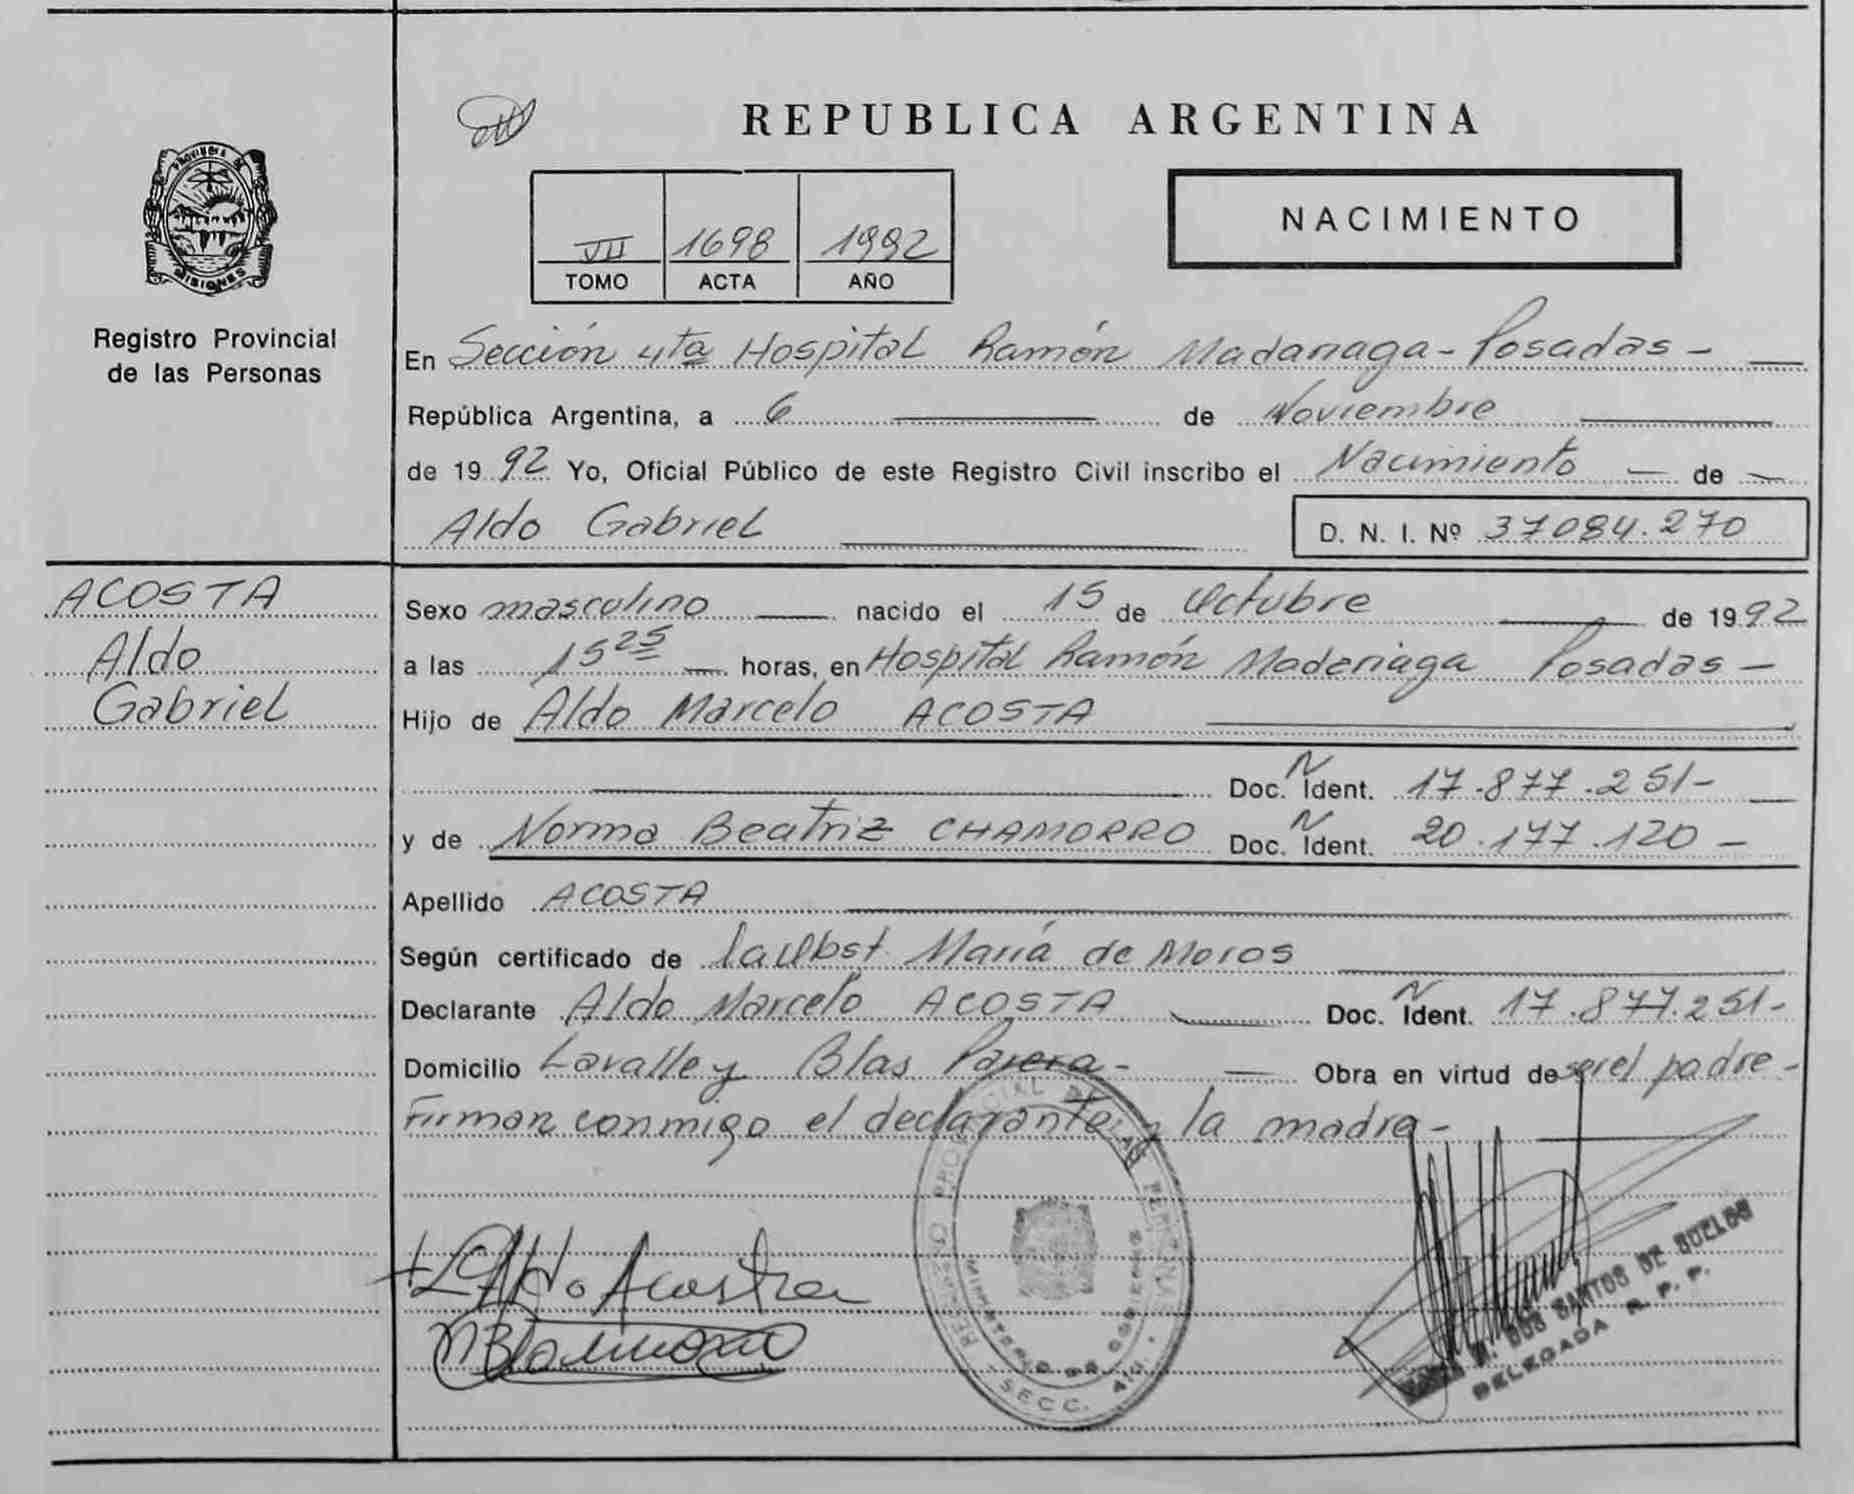 REPUBLICA ARGENTINA
PROVINCIA DE
MISIONES
Registro Provincial
de las Personas
VII 1698 1992
TOMO ACTA AÑO
NACIMIENTO
En Sección 4ta Hospital Ramón Madariaga - Posadas -
República Argentina, a 6 de Noviembre
de 1992 Yo, Oficial Público de este Registro Civil inscribo el Nacimiento de
Aldo Gabriel D. N. I. Nº 37084.270
ACOSTA
Aldo
Gabriel
Sexo masculino nacido el 15 de Octubre de 1992
a las 15 25 horas, en Hospital Ramón Maderiaga Posadas -
Hijo de Aldo Marcelo ACOSTA
Doc. N Ident. 17.877.251-
y de Norma Beatriz CHAMORRO Doc. N Ident. 20.177.120 -
Apellido ACOSTA
Según certificado de la Obst. María de Moros
Declarante Aldo Marcelo ACOSTA Doc. N Ident. 17.877.251-
Domicilio Lavalle y Blas Parera - Obra en virtud de ser el padre -
Firman conmigo el declarante y la madre -
Aldo Acosta
REGISTRO PROVINCIAL DE LAS PERSONAS
MINISTERIO DE GOBIERNO
SECC. 4ta.
DOS SANTOS DE SUELDO
DELEGADA R. P. P.